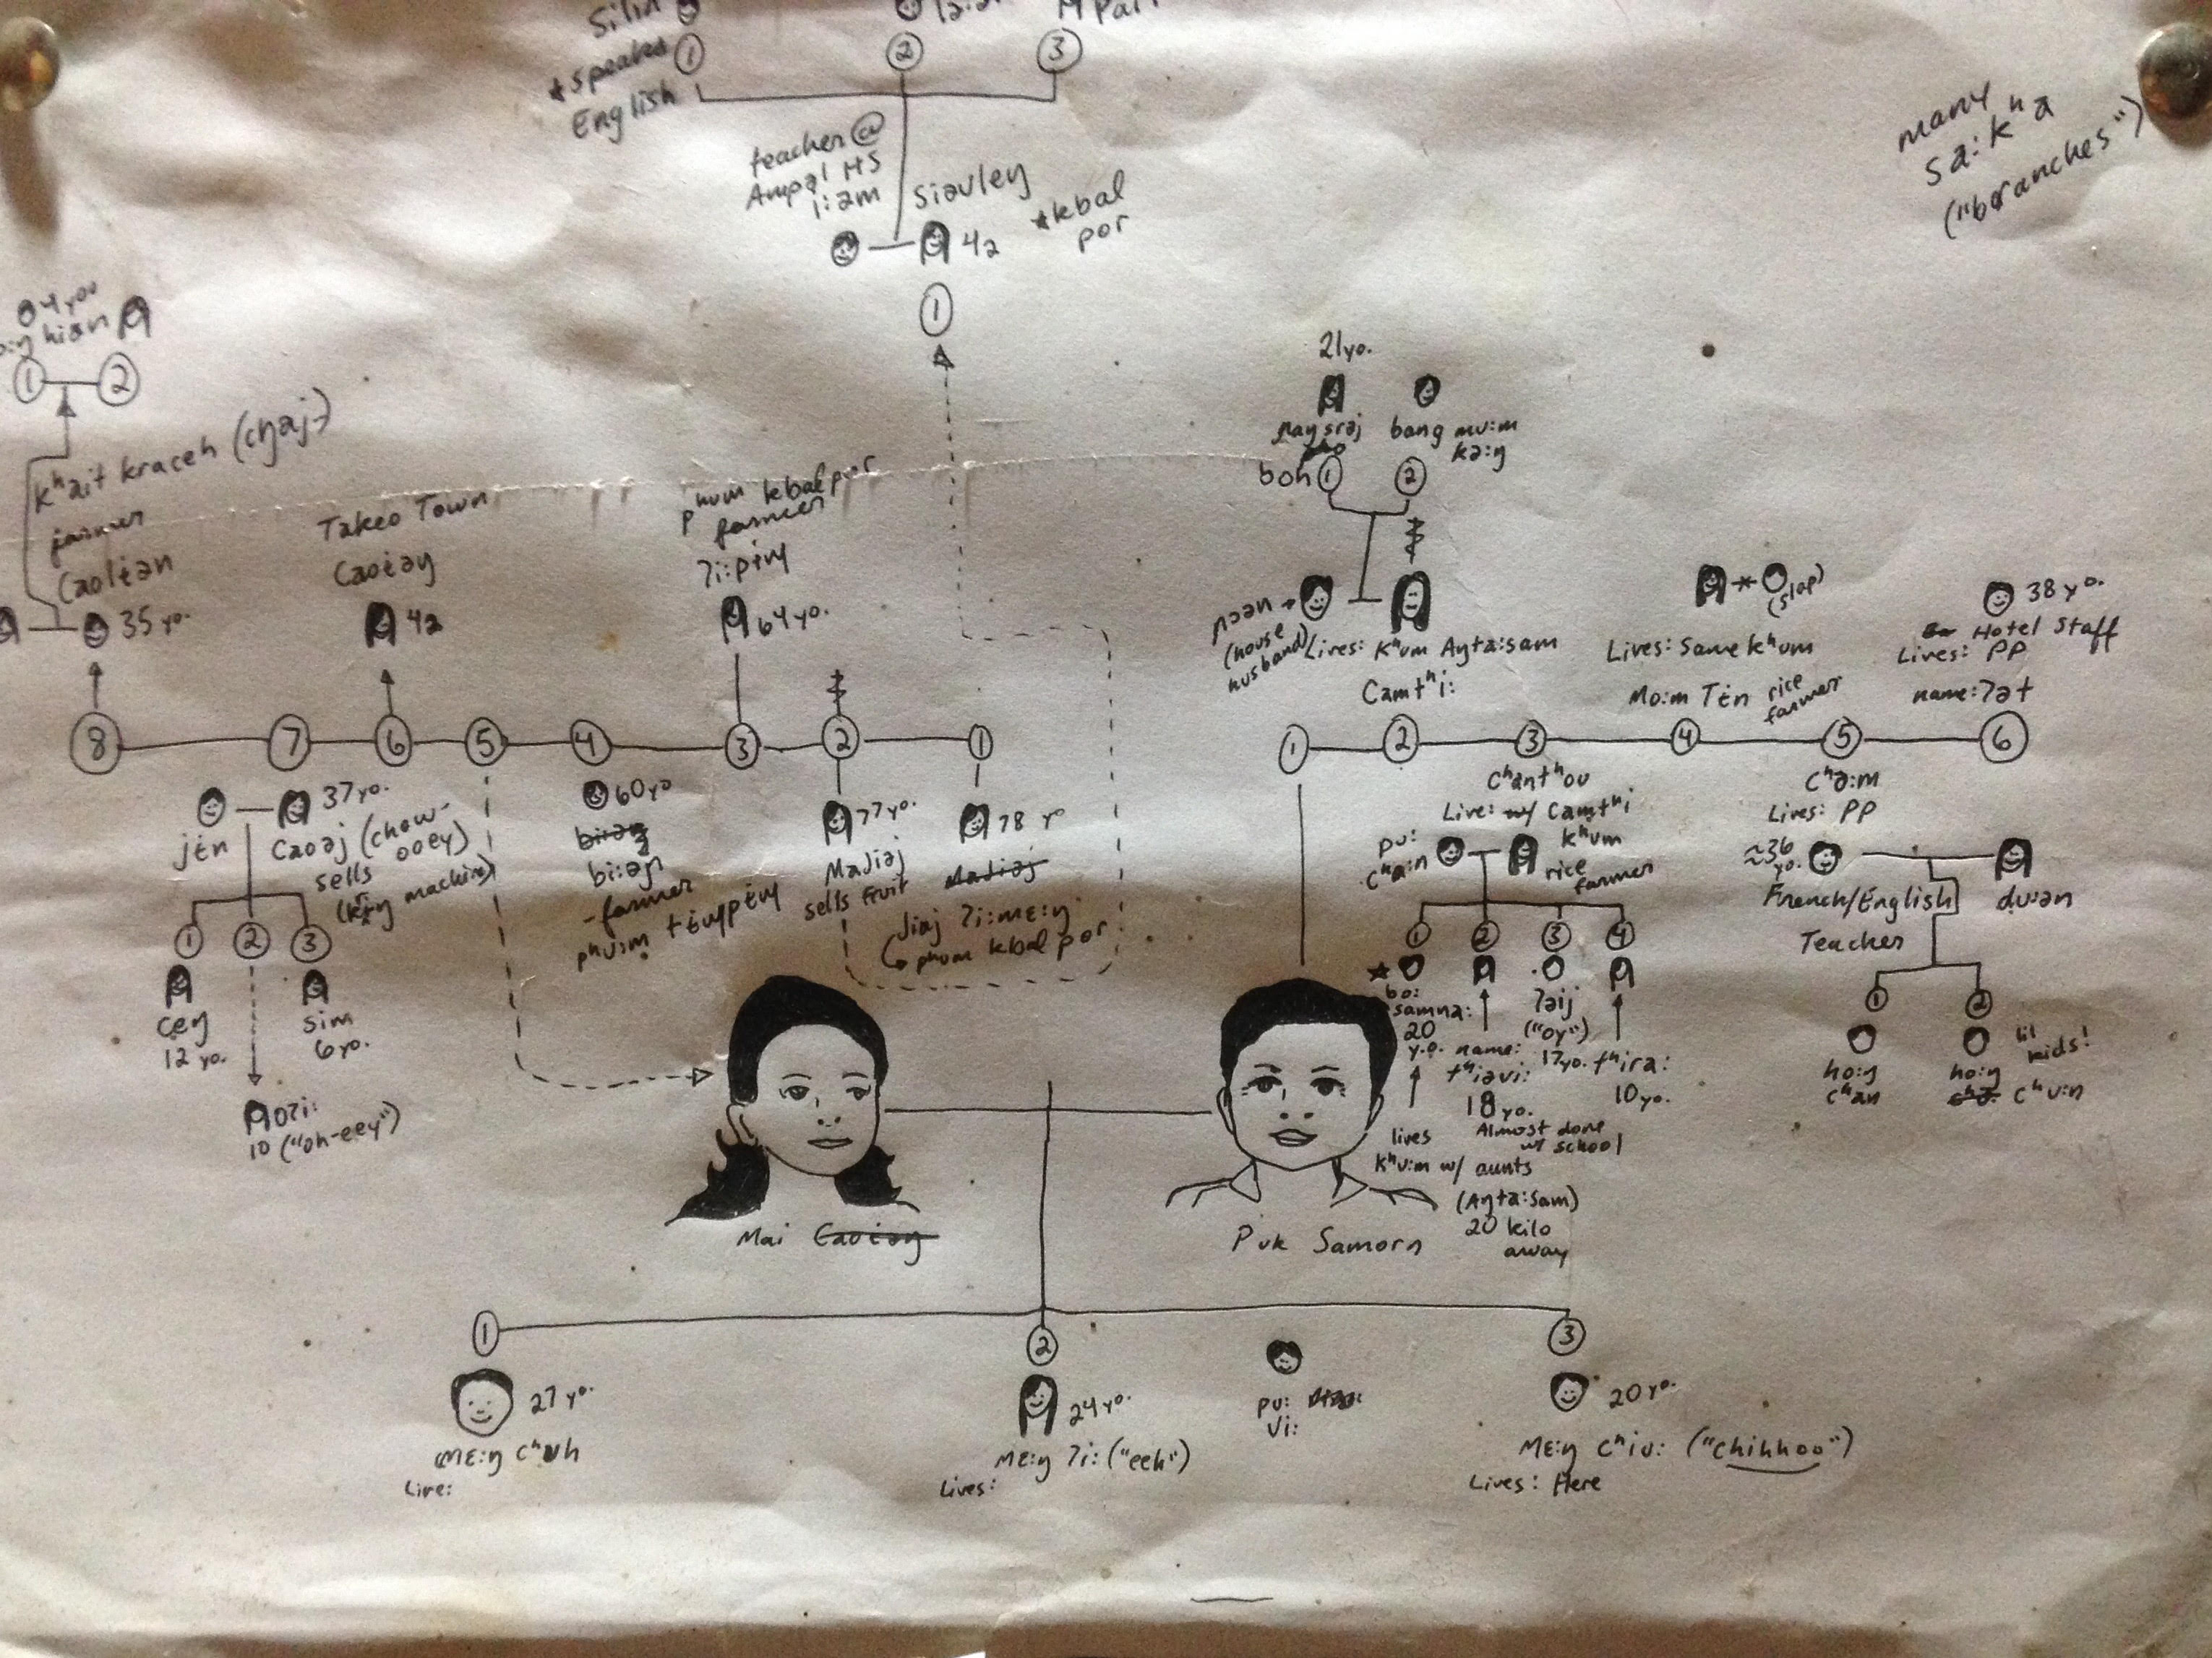 Silin
*speaks
English
①
②
③
many
sa:kʰa
("branches")
teacher@
Ampəl HS
i:am
Siəvley
42
*kbal
por
①
04 yoo
hiən
①
②
kʰait kraceh (cŋaj)
farmer
Caoliən
35 yo.
Takeo Town
Caoiəy
42
pʰum kbal por
farmer
ʔi:piŋ
64 yo.
21 yo.
ɲay srəj
bang mu:m
kə:ŋ
boh
①
②
nɔən
(house
husband)
Lives: kʰum Aŋta:sam
Camtʰi:
(slap)
Lives: Same kʰum
Mo:m Tɛn rice
farmer
38 yo.
Hotel Staff
Lives: PP
name: ʔət
⑧
⑦
⑥
⑤
④
③
②
①
①
②
③
④
⑤
⑥
jɛn
37 yo.
Caoəj (chow-
ooey)
sells
machine)
60 yo
bi:əɲ
-farmer
77 yo.
Madiəj
sells fruit
78 yo
Madiəj
Jiəj ʔi:mɛ:ŋ
pʰum kbal por
cʰantʰou
Live: w/ Camtʰi
kʰum
rice
farmer
pu:
cʰa:n
cʰə:m
Lives: PP
~36
yo.
French/English
Teacher
du:ən
①
②
③
①
②
③
④
①
②
ceŋ
12 yo.
sim
6 yo.
oʔi:
10 ("oh-eey")
bo:
samna:
20
y.o.
name:
tʰiəvi:
18 yo.
Almost done
w/ school
ʔəij
("oy")
17 yo.
tʰira:
10 yo.
lives
kʰu:m w/ aunts
(Aŋta:sam)
20 kilo
away
ho:ŋ
cʰan
ho:ŋ
cʰu:n
lil
kids!
Mai Caoiəy
Puk Samorn
①
②
③
27 yo.
mɛ:ŋ cʰuh
Live:
24 yo.
mɛ:ŋ ʔi: ("eeh")
Lives:
pu:
vi:
20 yo.
mɛ:ŋ cʰiu: ("chihhoo")
Lives: Here